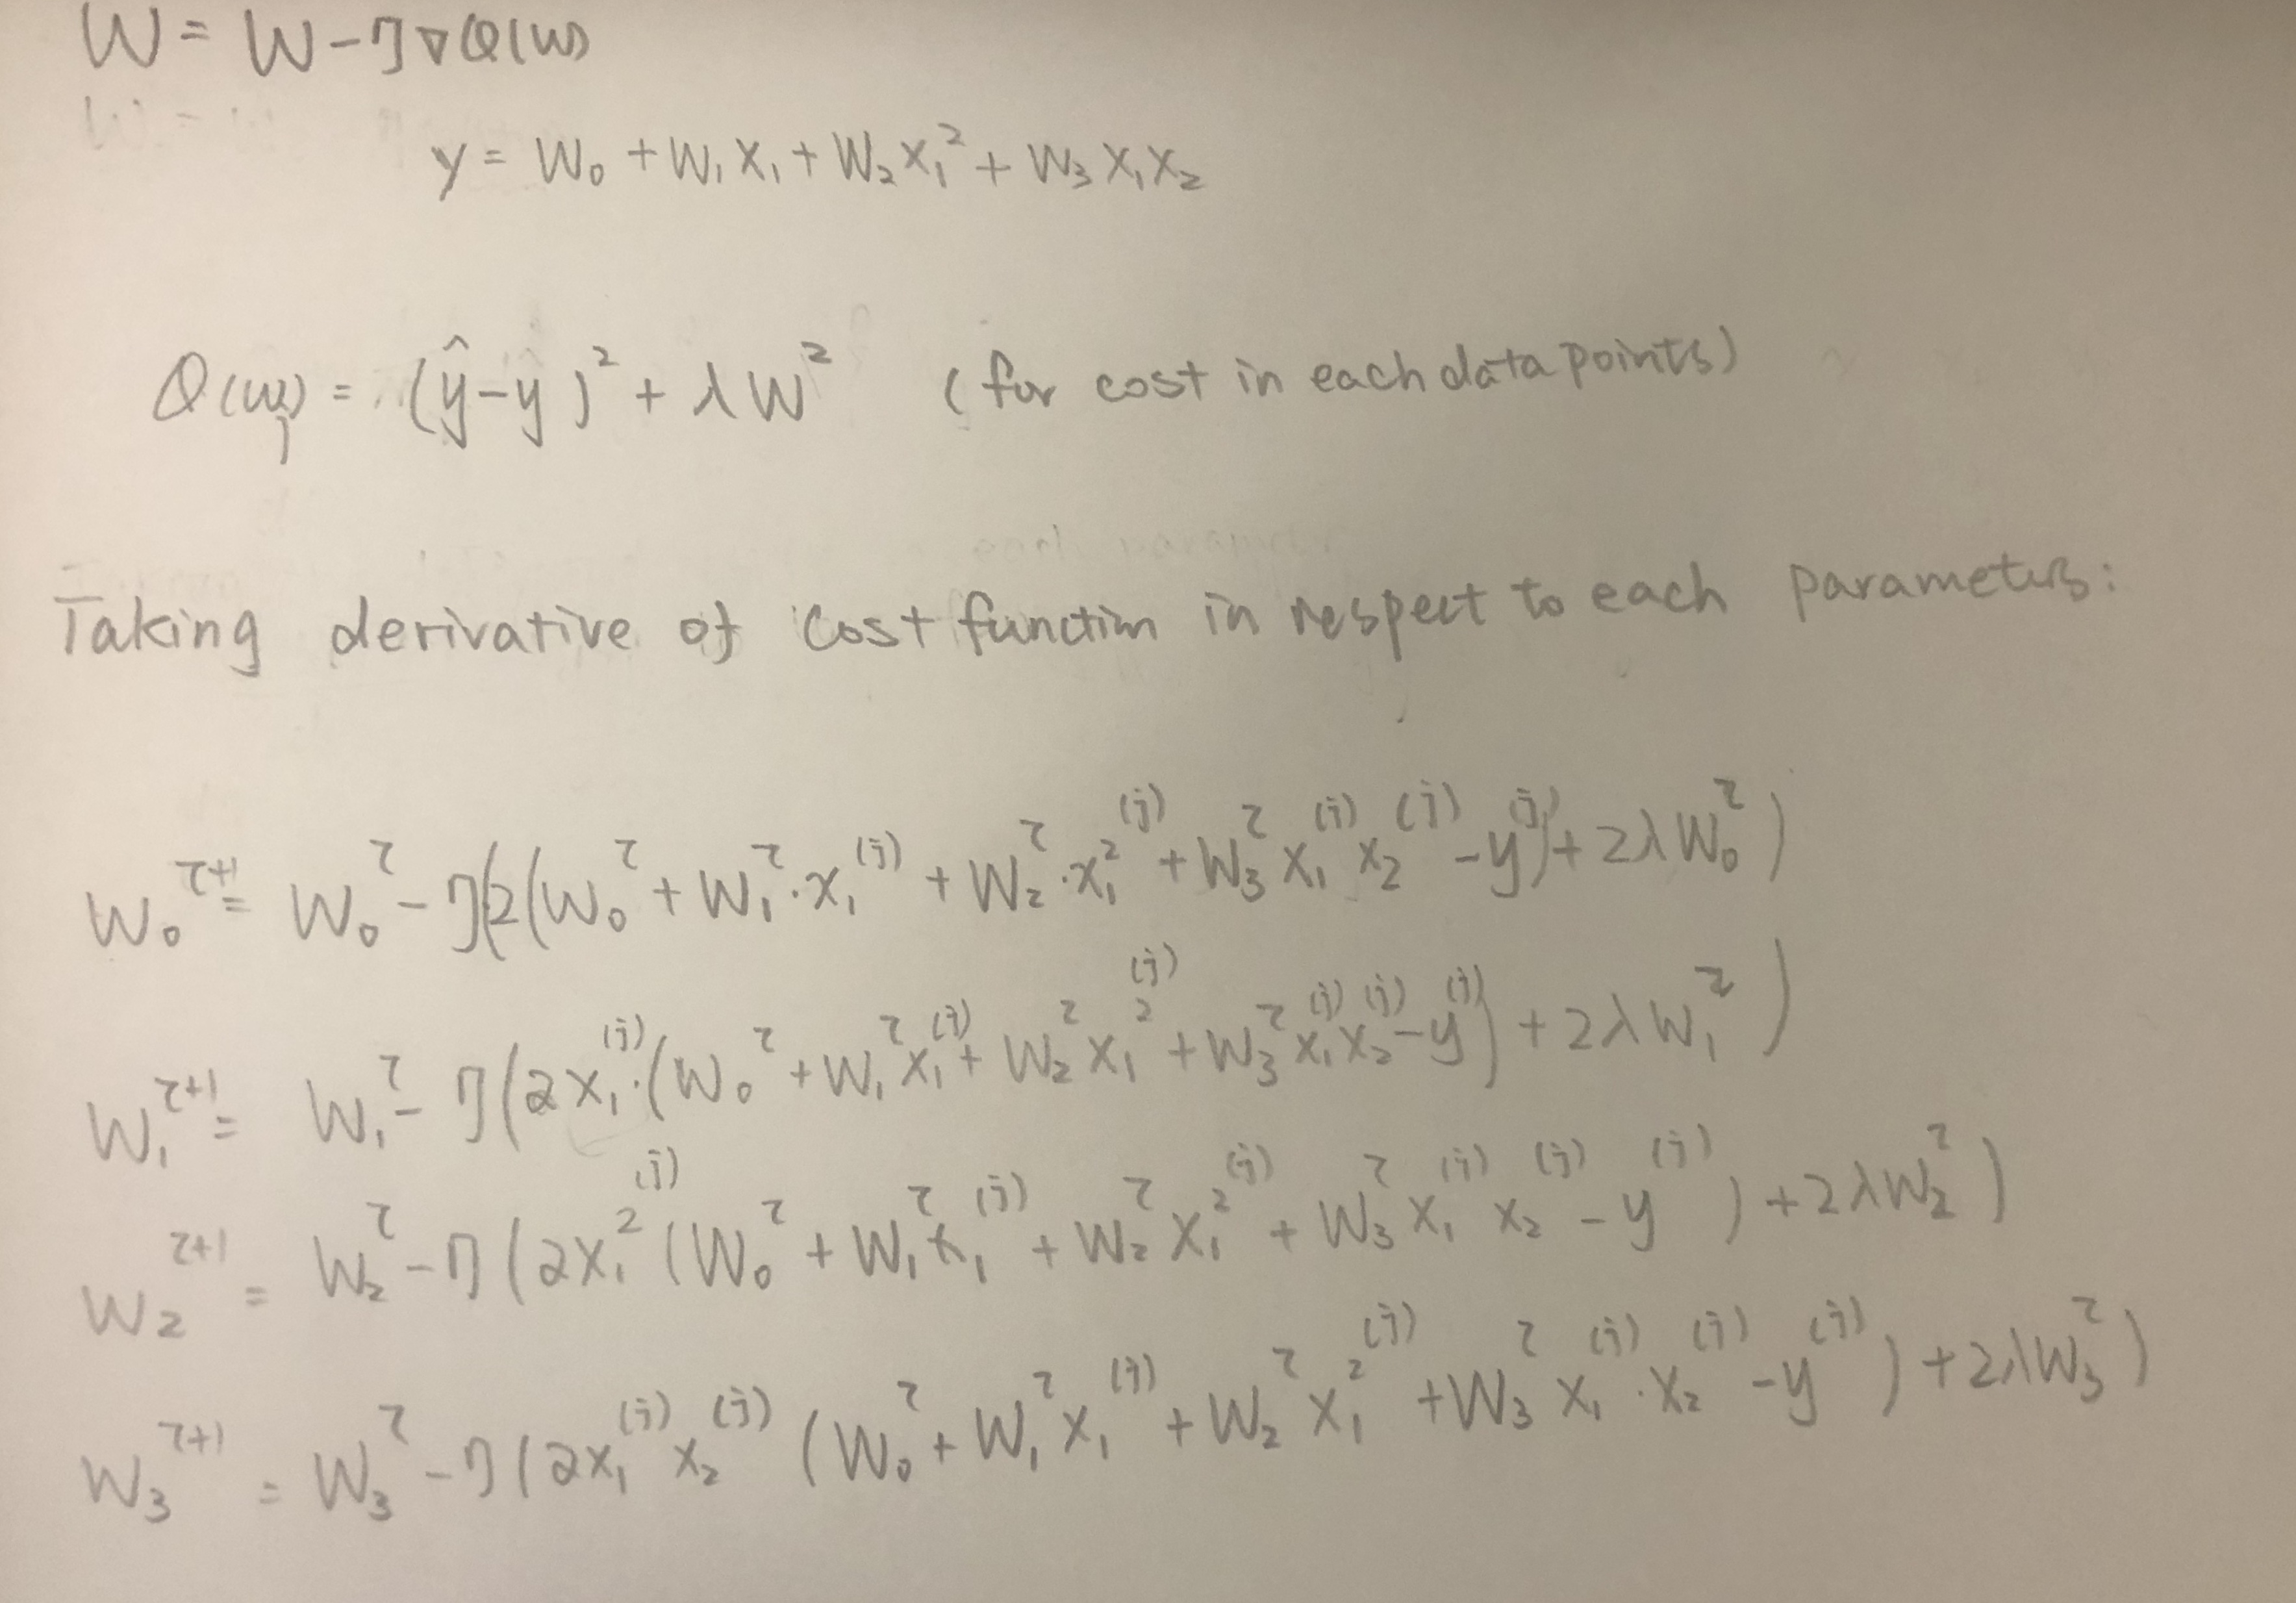 W = W - η∇Q(w)
y = W₀ + W₁X₁ + W₂X₁² + W₃X₁X₂
Q(wⱼ) = (ŷ-y)² + λW² (for cost in each data points)
Taking derivative of cost function in respect to each parameters:
W₀^(τ+1) = W₀^τ - η(2(W₀^τ + W₁^τ·x₁^(j) + W₂^τ·x₁²^(j) + W₃^τ x₁^(j) x₂^(j) - y^(j)) + 2λW₀^τ)
W₁^(τ+1) = W₁^τ - η(2x₁^(j)·(W₀^τ + W₁^τ x₁^(j) + W₂^τ x₁²^(j) + W₃^τ x₁^(j) x₂^(j) - y^(j)) + 2λW₁^τ)
W₂^(τ+1) = W₂^τ - η(2x₁²^(j) (W₀^τ + W₁^τ x₁^(j) + W₂^τ x₁²^(j) + W₃^τ x₁^(j) x₂^(j) - y^(j)) + 2λW₂^τ)
W₃^(τ+1) = W₃^τ - η(2x₁^(j) x₂^(j) (W₀^τ + W₁^τ x₁^(j) + W₂^τ x₁²^(j) + W₃^τ x₁^(j)·x₂^(j) - y^(j)) + 2λW₃^τ)